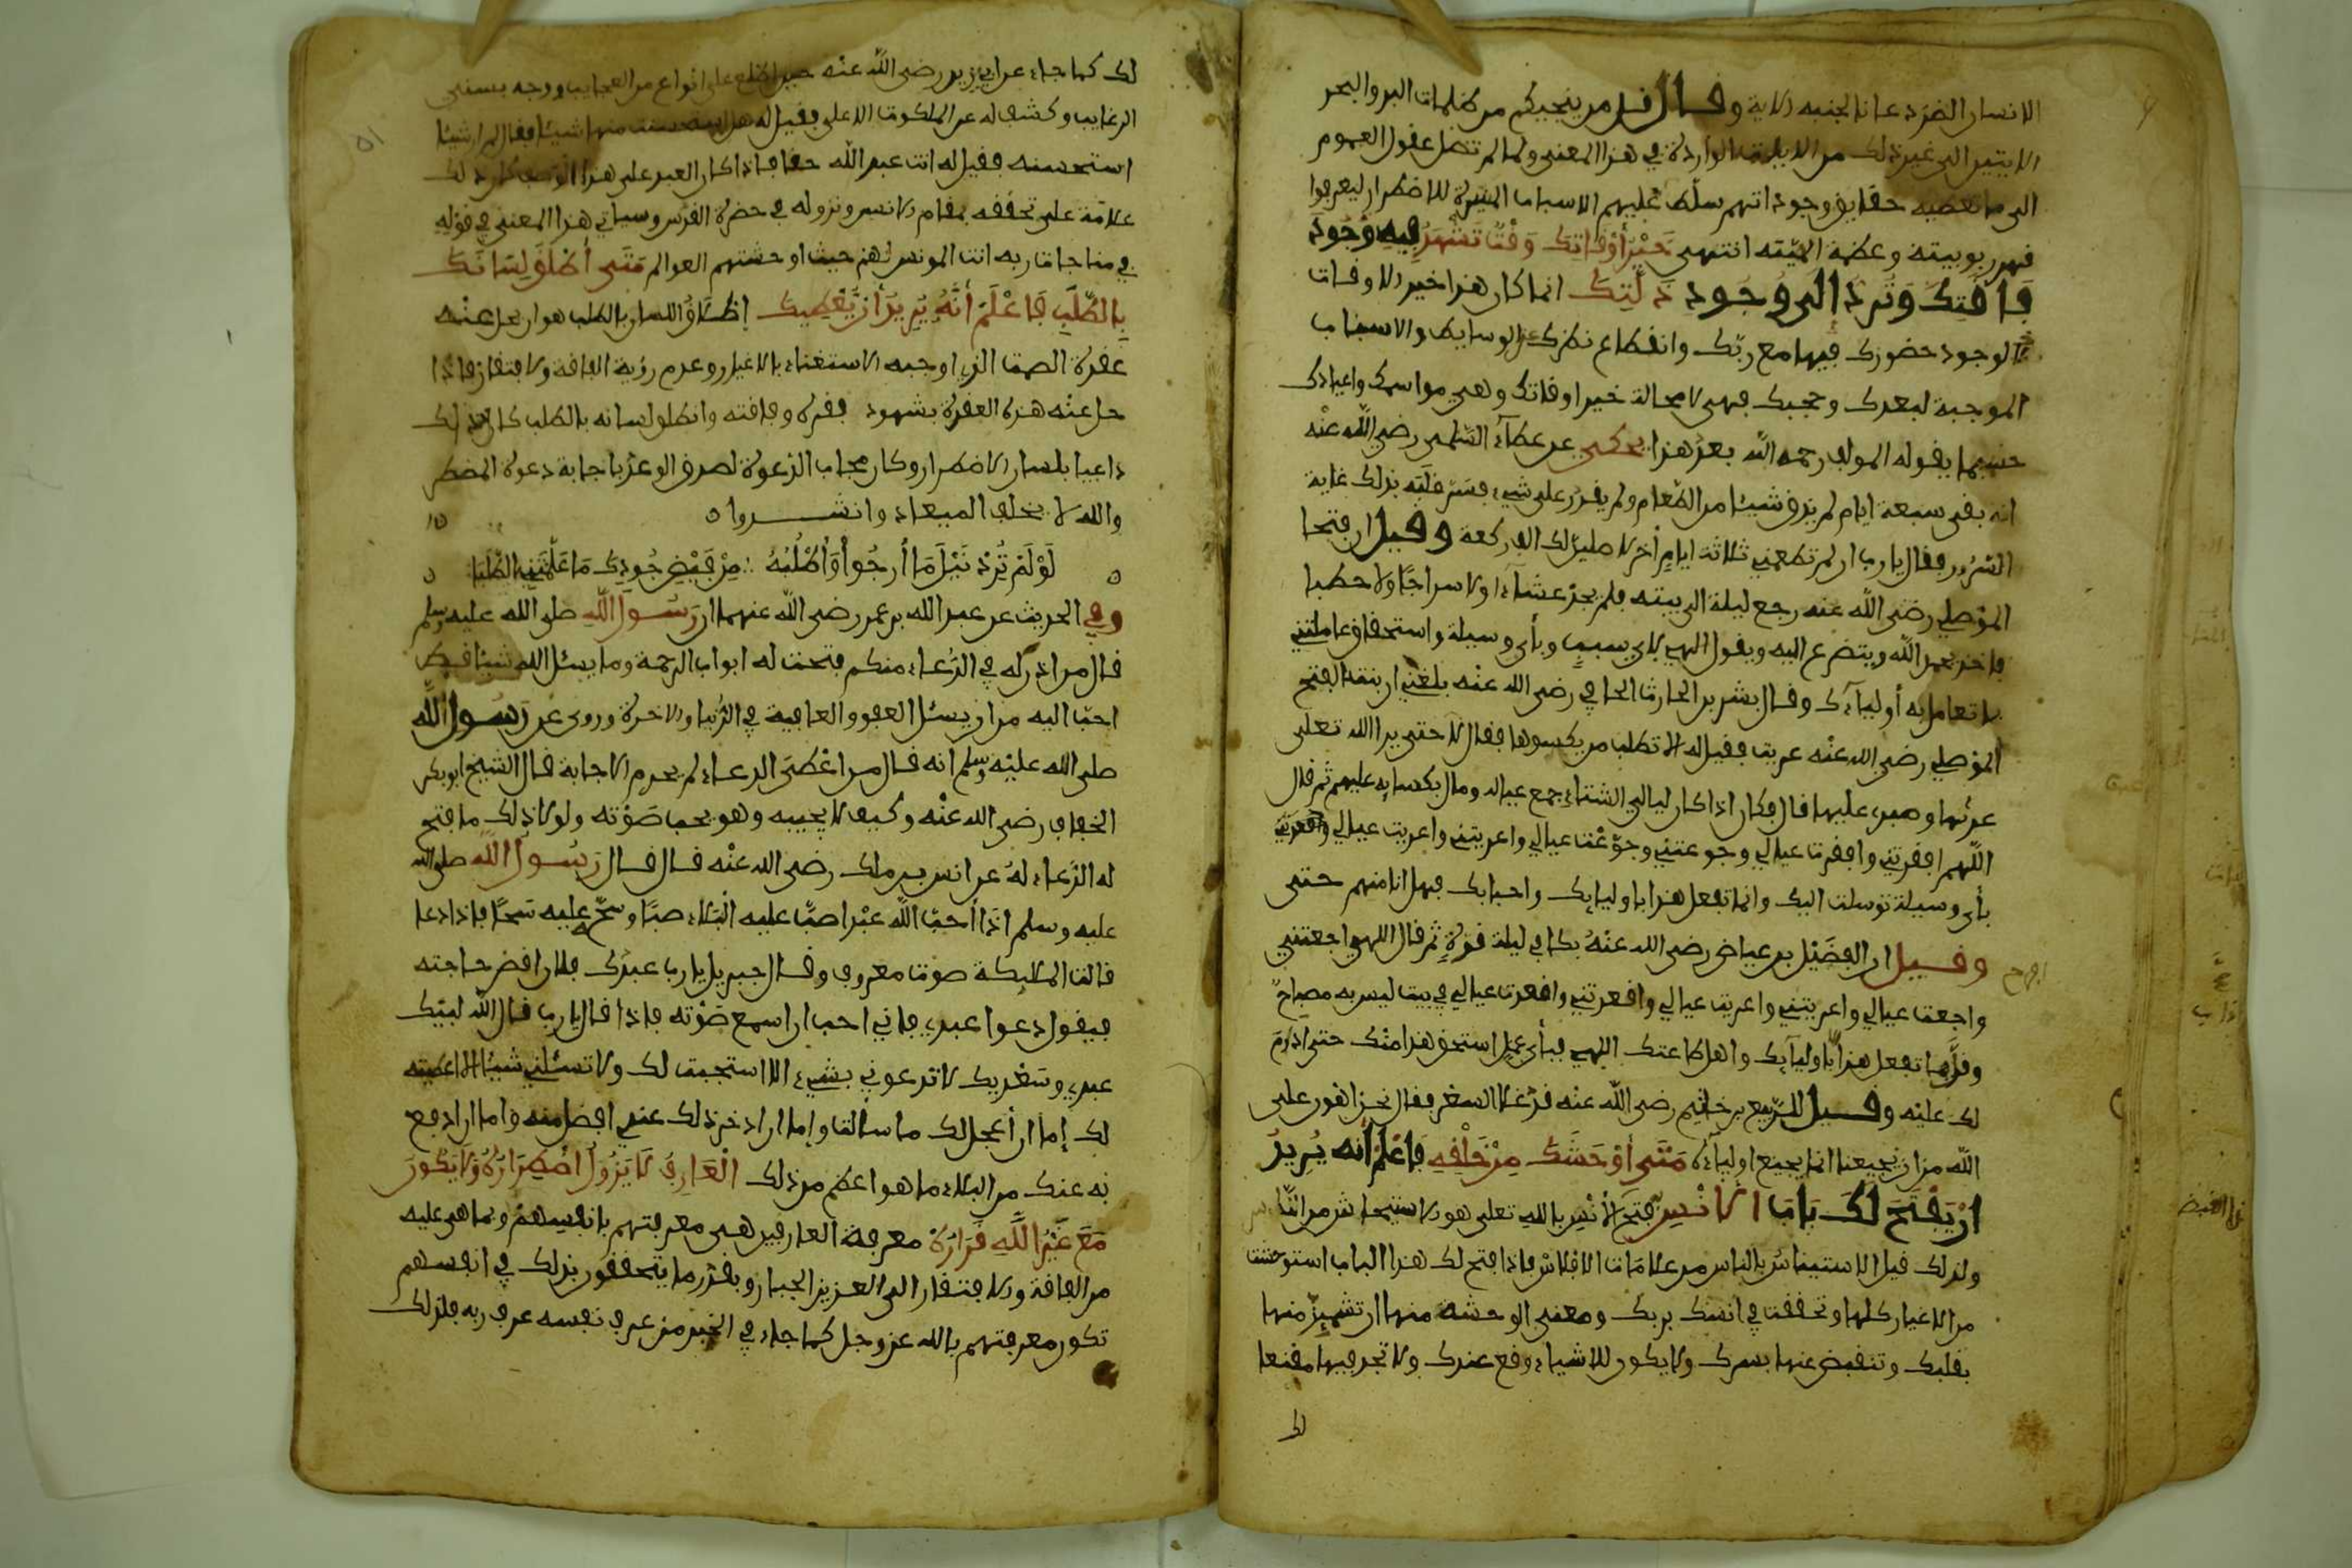 الانسان الضر دعانا لجنبه الاية وقال قل من ينجيكم من ظلمات البر والبحر
الايتين الى غير ذلك من الايات الواردة في هذا المعنى ولما لم تصل عقول العموم
الى ما تعطيه حقايق وجوداتهم سلط عليهم الاسباب المثيرة للاضطرار ليعرفوا
قهر ربوبيته وعظمة الهيته انتهى خَيْرُ أَوْقَاتِكَ وَقْتٌ تَشْهَدُ فِيهِ وُجُودَ
فَاقَتِكَ وَتُرَدُّ إِلَى وُجُودِ ذِلَّتِكَ انما كان هذا خير الاوقات
لوجود حضورك فيها مع ربك وانقطاع نظرك عن الوسايط والاسباب
الموجبة لبعدك وحجبك فهي لا محالة خير اوقاتك وهي مواسمك واعيادك
حسبما يقوله المولف رحمه الله بعد هذا يحكى عن عطاء السلمي رضي الله عنه
انه بقي سبعة ايام لم يذق شيئا من الطعام ولم يقدر على شيء فسر قلبه بذلك غاية
السرور فقال يا رب ان لم تطعمني ثلاثة ايام أخر لاصلين لك الف ركعة وقيل ان فتحا
الموصلي رضي الله عنه رجع ليلة الى بيته فلم يجد عشاء ولا سراجا ولا حطبا
فاخذ يحمد الله ويتضرع اليه ويقول الهي لاي سبب وبأي وسيلة واستحقاق عاملتني
بما تعامل به أولياءك وقال بشر بن الحارث الحافي رضي الله عنه بلغني ان بنت الفتح
الموصلي رضي الله عنه عريت فقيل له الا تطلب من يكسوها فقال لا حتى يرا الله تعلى
عريها وصبري عليها قال فكان اذا كان ليالي الشتاء جمع عياله ومال بكسايه عليهم ثم قال
اللهم افقرتني وافقرت عيالي وجوعتني وجوعت عيالي واعريتني واعريت عيالي
بأي وسيلة توسلت اليك وانما تفعل هذا باوليايك واحبابك فهل انا منهم حتى
افرح
وقيل ان الفضيل بن عياض رضي الله عنه بكا في ليلة قرة ثم قال اللهم اجعتني
واجعت عيالي واعريتني واعريت عيالي واقعدتني واقعدت عيالي في بيت ليس به مصباح
وقلما تفعل هذا الا باوليآيك واهل طاعتك الهي فبأي عمل استحق هذا منك حتى ادوم
لك عليه وقيل للربيع بن خثيم رضي الله عنه قد غلا السعر فقال نحن اهون على
الله من ان يجيعنا انما يجيع اولياءه مَتَى أَوْحَشَكَ مِنْ خَلْقِهِ فَاعْلَمْ أَنَّهُ يُرِيدُ
اَنْ يَفْتَحَ لَكَ بَابَ الاُنْسِ بِهِ فتح الأنس بالله تعلى هو الاستيحاش من الناس
ولذلك قيل الاستيناس بالناس من علامات الافلاس فاذا فتح لك هذا الباب استوحشت
من الاغيار كلها وتحققت في انسك بربك ومعنى الوحشة منها ان تشمئز منها
بقلبك وتنقبض عنها بسرك ولا يكون للاشياء وقع عندك ولا تجد فيها مقنعا
لك
لك كما جاء عن ابي يزيد رضي الله عنه حين اطلع على انواع من العجايب ووجه بسني
الرغايب وكشف له عن الملكوت الاعلى فقيل له هل استحسنت منها شيئا فقال لم ار شيئا
استحسنه فقيل له انت عبد الله حقا فاذا كان العبد على هذا الوصف كان ذلك
علامة على تحققه بمقام الانس ونزوله في حضرة القدس وسياتي هذا المعنى في قوله
في مناجات ربه انت المونس لهم حيث اوحشتهم العوالم مَتَى أَطْلَقَ لِسَانَكَ
بِالطَّلَبِ فَاعْلَمْ أَنَّهُ يُرِيدُ أَنْ يُعْطِيَكَ إطلاق اللسان بالطلب هو ان يحل عنه
عقدة الصمت الذي اوجبه الاستغناء بالاغيار وعدم رؤية الفاقة والافتقار فاذا
حل عنه هذه العقدة بشهود فقره وفاقته وانطلق لسانه بالطلب كان ذلك
داعيا بلسان الاضطرار وكان مجاب الدعوة لصدق الوعد باجابة دعوة المضطر
والله لا يخلف الميعاد وانشدوا
لَوْ لَمْ تُرِدْ نَيْلَ مَا أَرْجُو وَأَطْلُبُهُ ∴ مِنْ فَيْضِ جُودِكَ مَا عَلَّمْتَنِي الطَّلَبَا
وفي الحديث عن عبد الله بن عمر رضي الله عنهما ان رسول الله صلى الله عليه وسلم
قال من اذن له في الدعاء منكم فتحت له ابواب الرحمة وما يسئل الله شيئا قط
احب اليه من ان يسئل العفو والعافية في الدنيا والاخرة وروي عن رسول الله
صلى الله عليه وسلم انه قال من اعطي الدعاء لم يحرم الاجابة قال الشيخ ابو بكر
الخفاف رضي الله عنه وكيف لا يجيبه وهو يحب صوته ولولا ذلك ما فتح
له الدعاء له عن انس بن ملك رضي الله عنه قال قال رسول الله صلى الله
عليه وسلم اذا أحب الله عبدا صب عليه البلاء صبا وسح عليه سحا فاذا دعا
قالت المليكة صوت معروف وقال جبريل يا رب عبدك فلان اقض حاجته
فيقول دعوا عبدي فاني احب ان اسمع صوته فاذا قال يا رب قال الله لبيك
عبدي وسعديك لا تدعوني بشيء الا استجبت لك ولا تسئلني شيئا الا اعطيته
لك إما ان أعجل لك ما سألت وإما ان ادخر ذلك عندي افضل منه واما ان ادفع
به عنك من البلاء ما هو اعظم من ذلك الْعَارِفُ لاَ يَزُولُ اضْطِرَارُهُ وَلاَ يَكُونُ
مَعَ غَيْرِ اللَّهِ قَرَارُهُ معرفة العارفين هي معرفتهم بانفسهم وبما هي عليه
من الفاقة والافتقار الى العزيز الجبار وبقدر ما يتحققون بذلك في انفسهم
تكون معرفتهم بالله عز وجل كما جاء في الخبر من عرف نفسه عرف ربه فلذلك